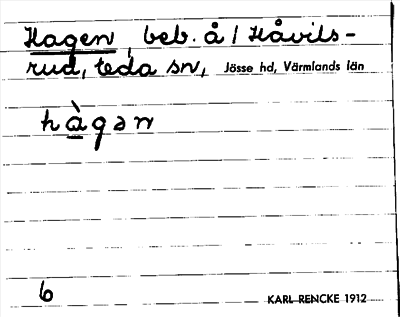 Hagen, beb. å / Håvils-
rud, Eda sn, Jösse hd, Värmlands län
hàgən
6 KARL RENCKE 1912